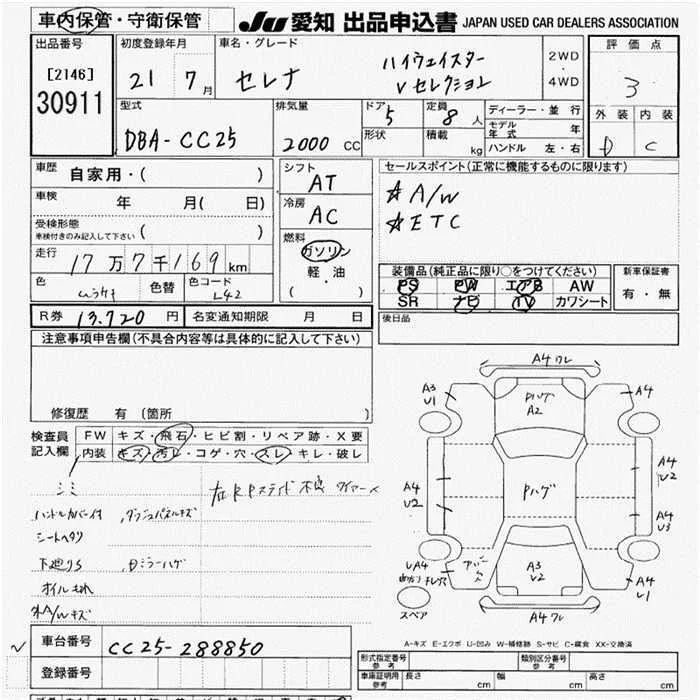 車内保管・守衛保管 JU 愛知 出品申込書 JAPAN USED CAR DEALERS ASSOCIATION
出品番号 初度登録年月 車名・グレード 評価点
[2146] 21 7月 セレナ ハイウェイスター 2WD
30911 Vセレクション ・ 4WD 3
型式 排気量 ドア 5 定員 8人 ディーラー・並行 外装 内装
DBA-CC25 2000 CC 形状 積載 kg モデル年式 年 D C
ハンドル 左・右
車歴 自家用・( ) シフト AT セールスポイント(正常に機能するものに限ります)
車検 年 月( 日) 冷房 AC ☆A/W
受検形態 ☆ETC
車検付きのみ記入して下さい ( ) 燃料
走行 17万7千169km ガソリン 装備品(純正品に限り○をつけてください) 新車保証書
色 色替 色コード L42 軽・油 PS PW エアB AW 有・無
( ) SR ナビ TV カワシート
R券 13.720円 名変通知期限 月 日 後日品
注意事項申告欄(不具合内容等は具体的に記入して下さい)
修復歴 有 (箇所 )
検査員 FW キズ・飛石・ヒビ割・リペア跡・X要
記入欄 内装 キズ・汚レ・コゲ・穴・スレ・キレ・破レ
シミ
ハンドルカバー付 ダッシュパネルキズ
シートヘタリ
下廻りS ミラーハゲ
オイルもれ
A/Wキズ
A4ワレ
A3 V1 Pハゲ A2 A4
A4 V2 Pハゲ A4 V2
A4 V3
UA4 A3 V2 A4 L1
スペア A4ワレ
A-キズ E-エクボ U-凹み W-補修跡 S-サビ C-腐食 XX-交換済
車台番号 CC25-288850
登録番号
形式指定番号 参考 類別区分番号 参考
車庫証明用 参考 長さ cm 幅 cm 高さ cm